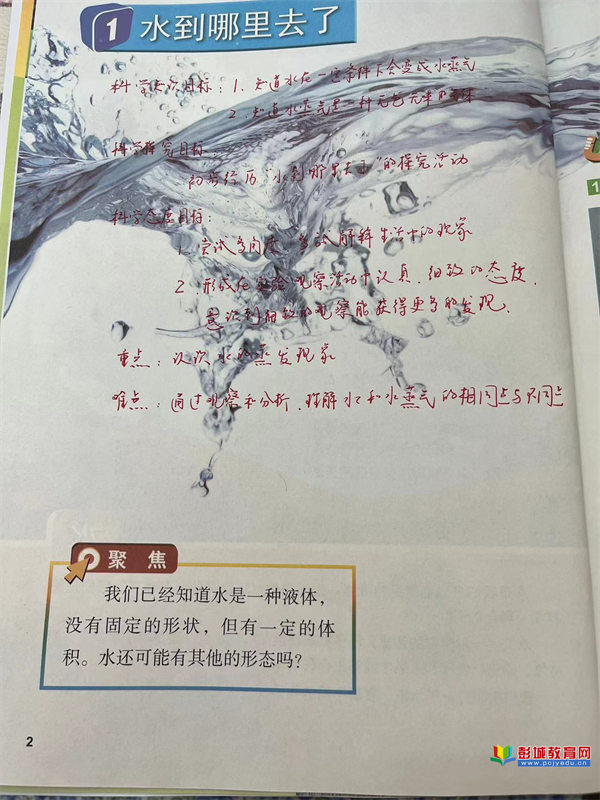 1 水到哪里去了
科学知识目标：1. 知道水在一定条件下会变成水蒸气
2. 知道水蒸气是一种无色无味的气体
科学探究目标：
初步经历“水到哪里去了”的探究活动
科学态度目标：
1. 尝试多角度、尝试解释生活中的现象
2. 形成在观察活动中认真、细致的态度，
意识到细致的观察能获得更多的发现.
重点：认识水的蒸发现象
难点：通过观察和分析，理解水和水蒸气的相同点与不同点
聚焦
我们已经知道水是一种液体，
没有固定的形状，但有一定的体
积。水还可能有其他的形态吗？
2
1
彭城教育网
www.pcjyedu.cn